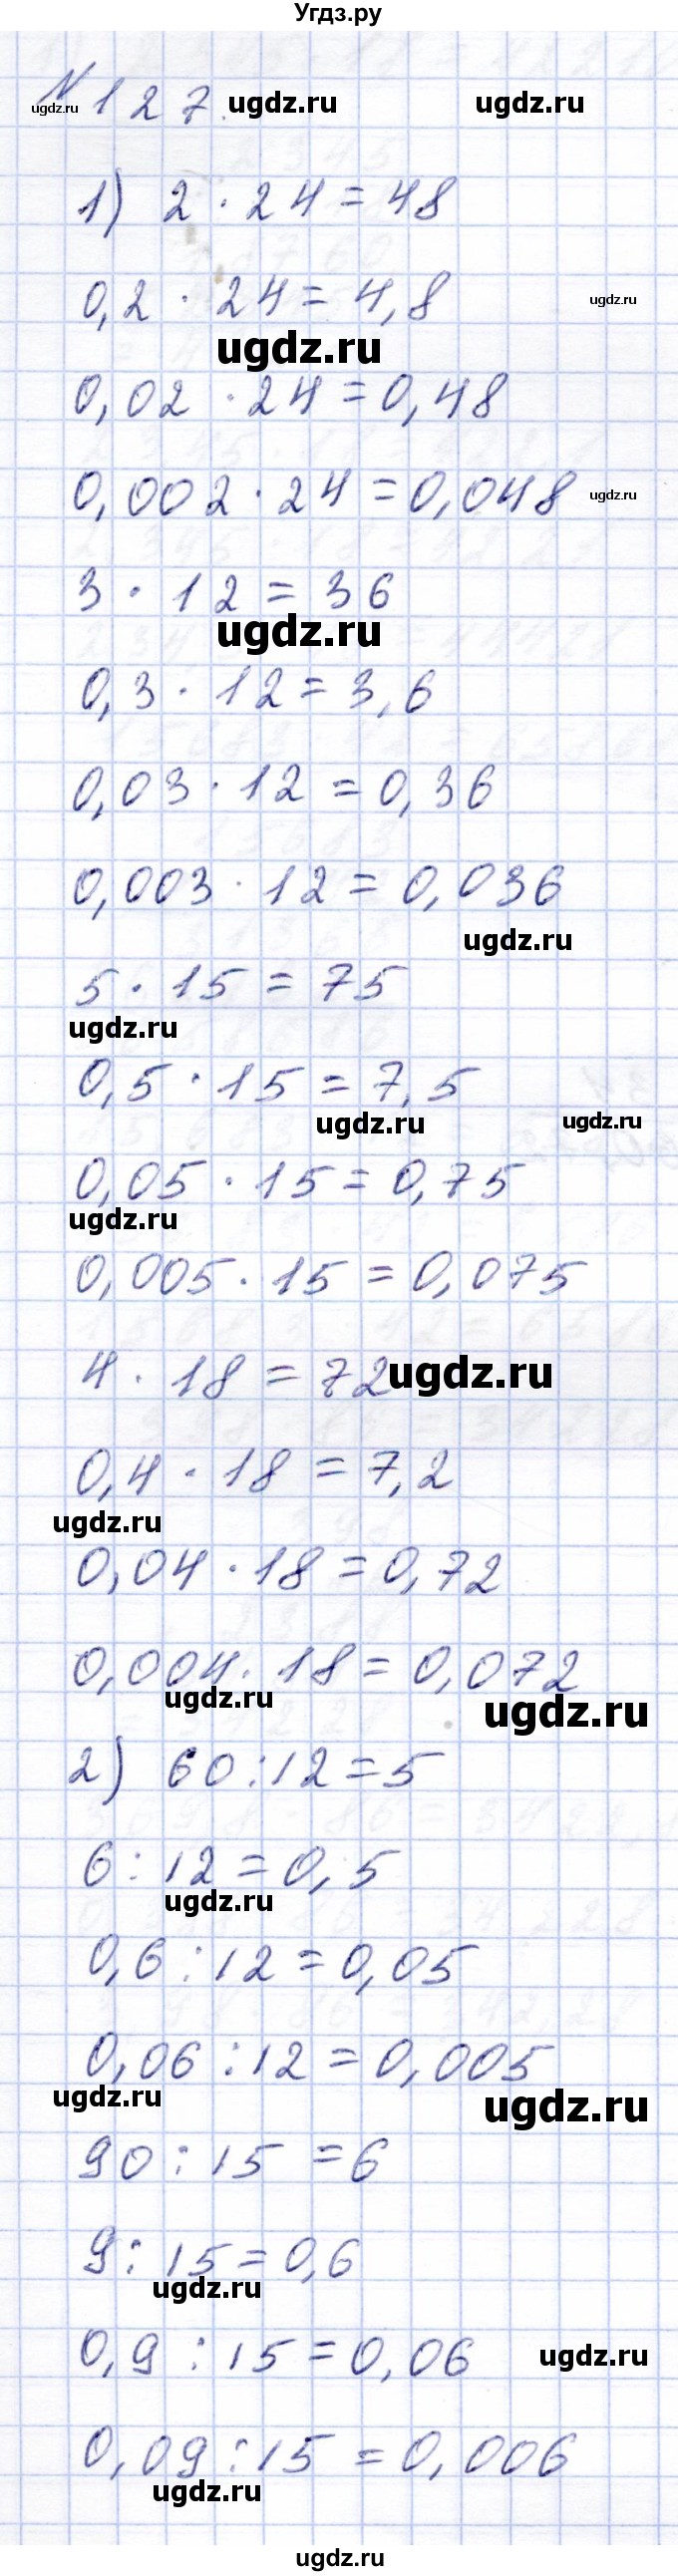 Угдз.ру
№127.
ugdz.ru ugdz.ru ugdz.ru
1) 2 · 24 = 48
0,2 · 24 = 4,8
ugdz.ru
ugdz.ru
0,02 · 24 = 0,48
0,002 · 24 = 0,048
ugdz.ru
3 · 12 = 36
ugdz.ru
0,3 · 12 = 3,6
0,03 · 12 = 0,36
0,003 · 12 = 0,036
ugdz.ru
5 · 15 = 75
ugdz.ru
0,5 · 15 = 7,5
ugdz.ru ugdz.ru
0,05 · 15 = 0,75
ugdz.ru
0,005 · 15 = 0,075
4 · 18 = 72
ugdz.ru
0,4 · 18 = 7,2
ugdz.ru
0,04 · 18 = 0,72
0,004 · 18 = 0,072
ugdz.ru ugdz.ru
2) 60 : 12 = 5
6 : 12 = 0,5
ugdz.ru
0,6 : 12 = 0,05
0,06 : 12 = 0,005
ugdz.ru ugdz.ru
90 : 15 = 6
9 : 15 = 0,6
ugdz.ru
0,9 : 15 = 0,06
ugdz.ru
0,09 : 15 = 0,006
ugdz.ru
ugdz.ru